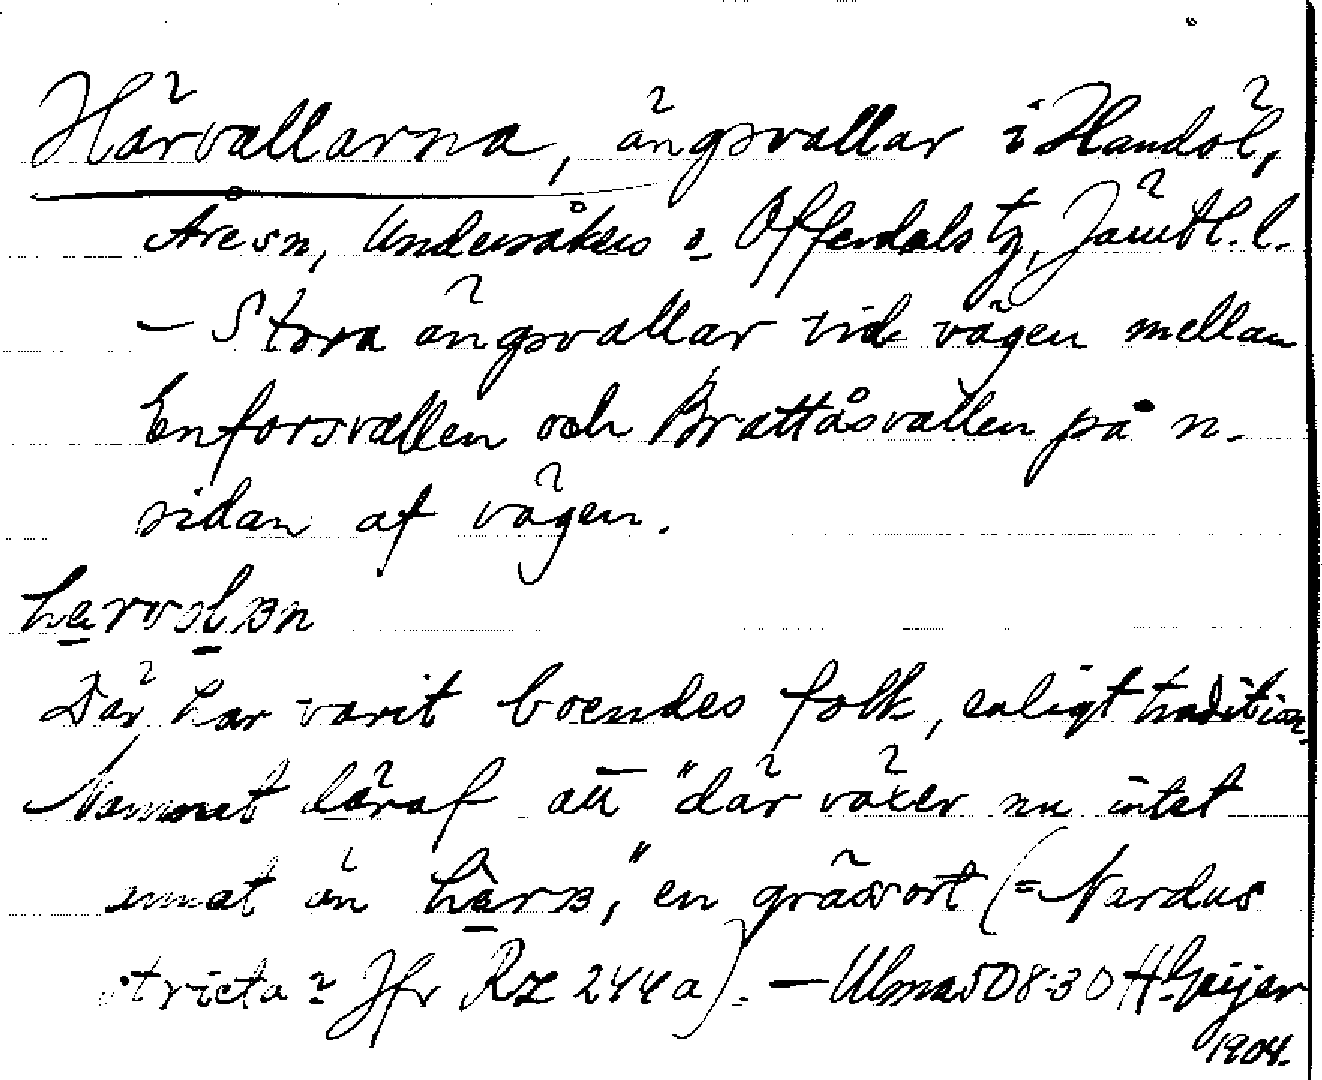 Härvallarna, ängsvallar i Handöl,
Åre sn, Undersåkers o. Offerdals tg, Jämtl. l.
— Stora ängsvallar vid vägen mellan
Enforsvallen och Brattåsvallen på n.
sidan af vägen.
Där har varit boendes folk, enligt tradition.
Namnet däraf att "där växer nu intet
annat än härb," en grässort (= Nardus
stricta? Jfr Rz 244 a). — Ulma 508:30 H. Geijer
1904.